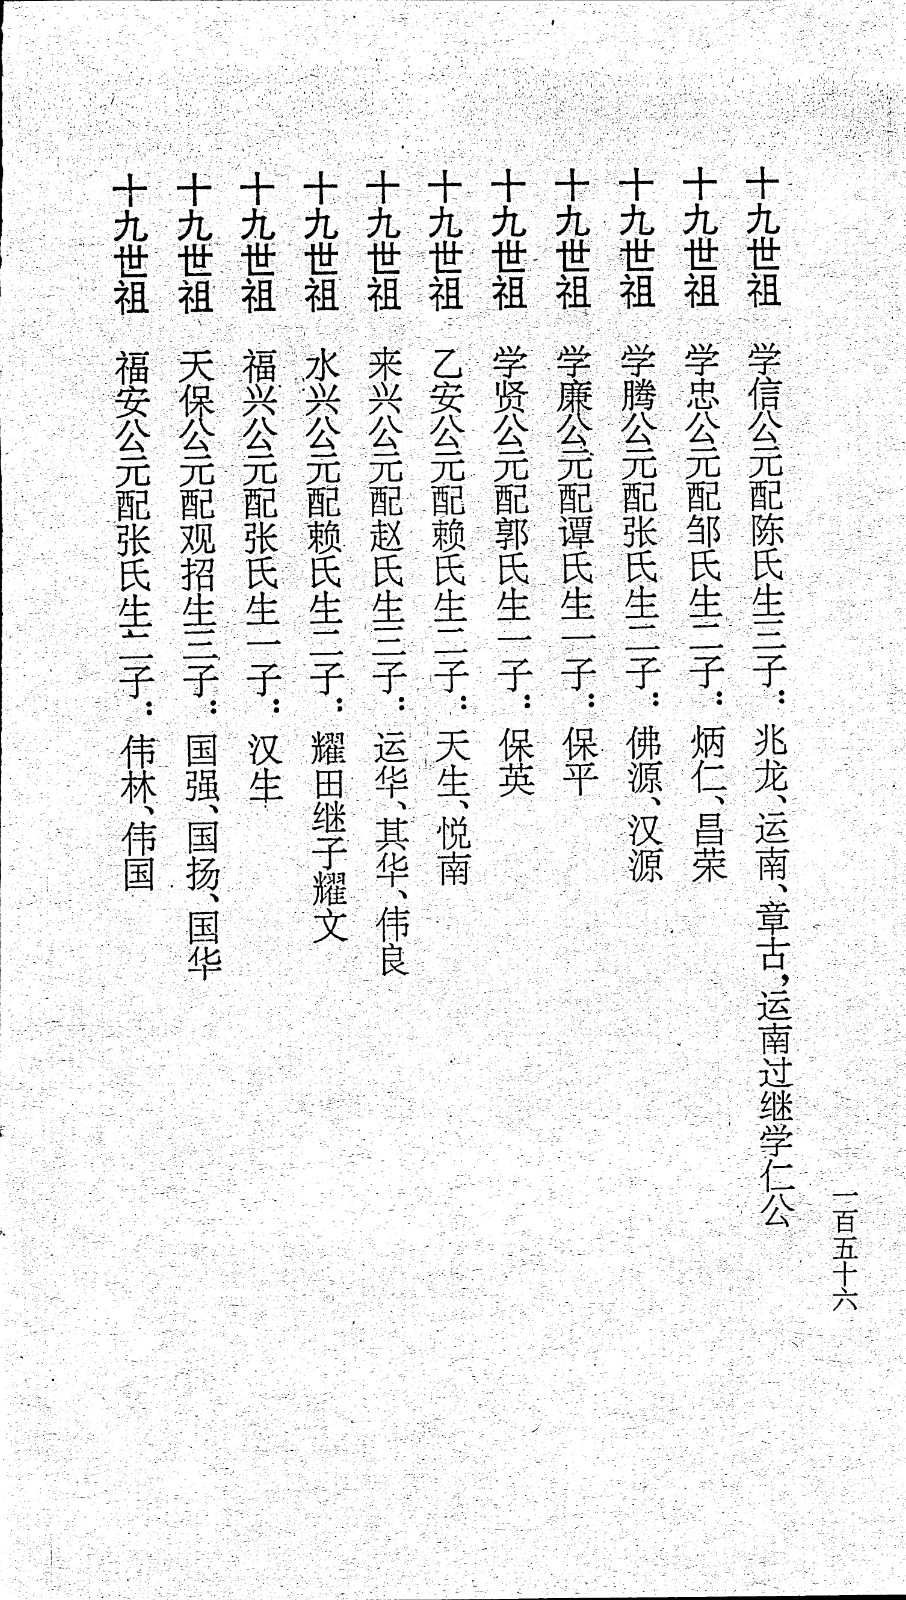 一百五十六
十九世祖 学信公元配陈氏生三子：兆龙、运南、章古，运南过继学仁公
十九世祖 学忠公元配邹氏生二子：炳仁、昌荣
十九世祖 学腾公元配张氏生二子：佛源、汉源
十九世祖 学廉公元配谭氏生一子：保平
十九世祖 学贤公元配郭氏生一子：保英
十九世祖 乙安公元配赖氏生二子：天生、悦南
十九世祖 来兴公元配赵氏生三子：运华、其华、伟良
十九世祖 水兴公元配赖氏生二子：耀田继子耀文
十九世祖 福兴公元配张氏生一子：汉生
十九世祖 天保公元配观招生三子：国强、国扬、国华
十九世祖 福安公元配张氏生二子：伟林、伟国